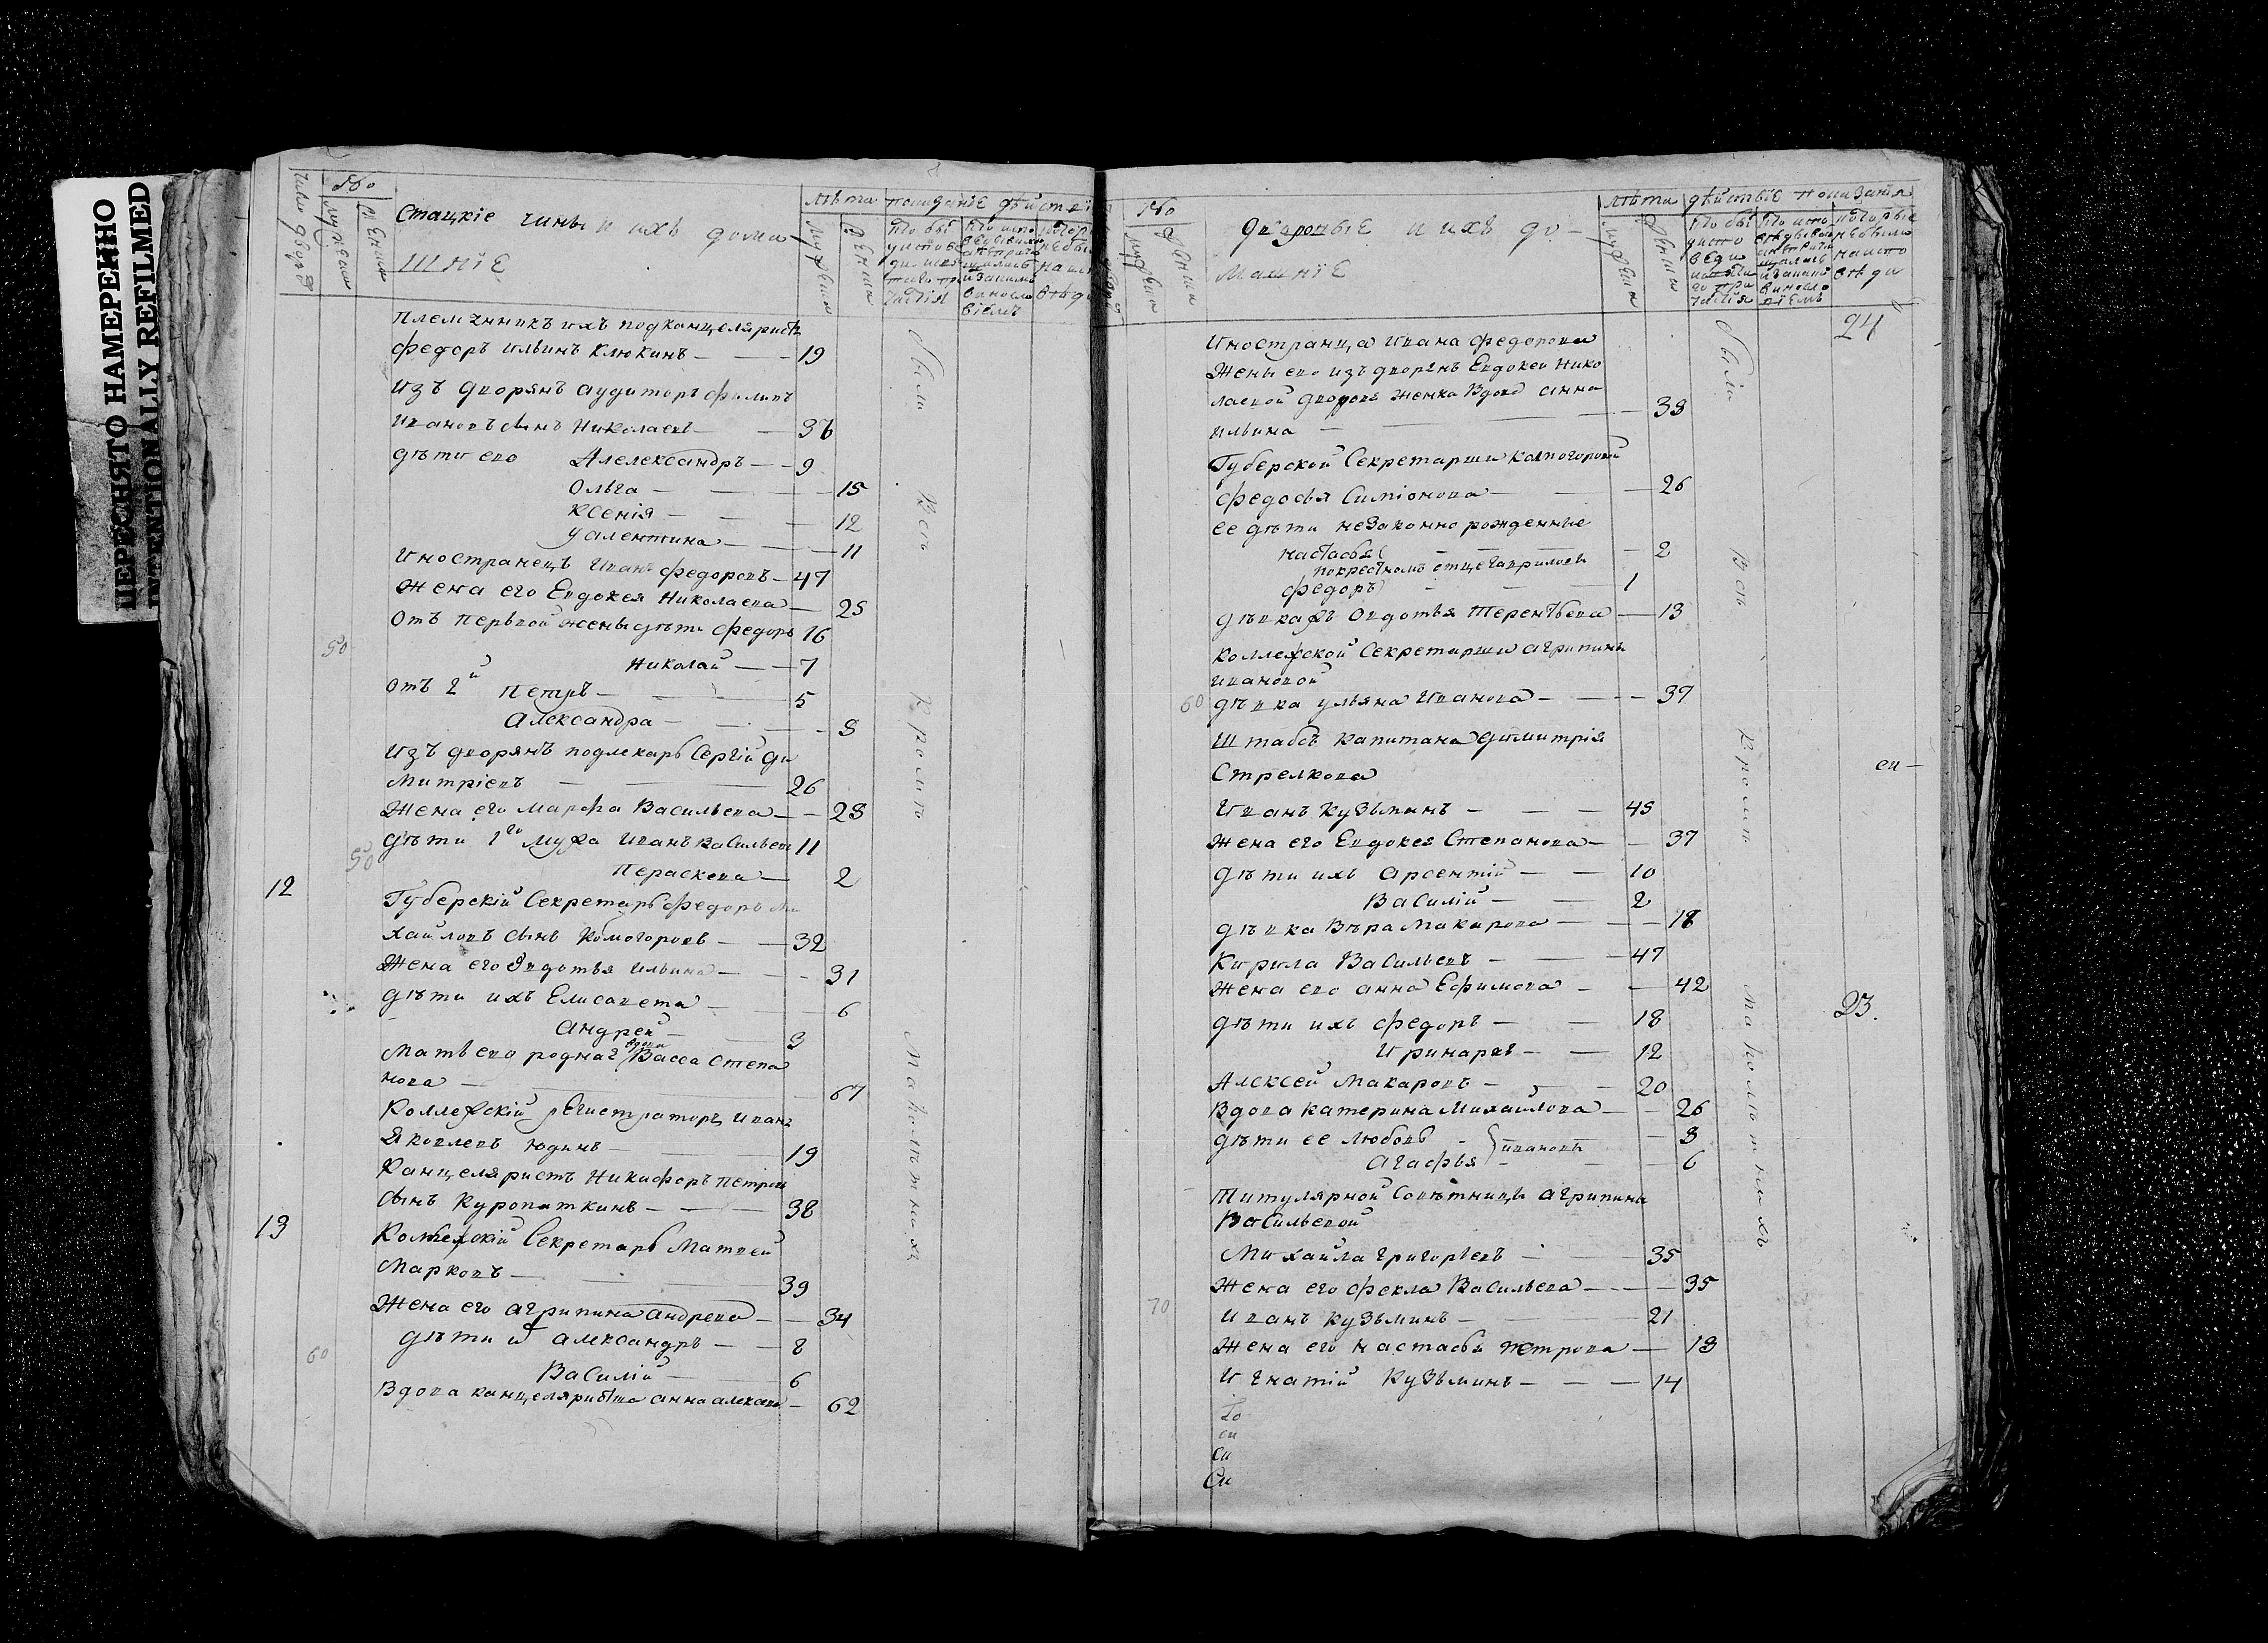 ПЕРЕСНЯТО НАМЕРЕННО
INTENTIONALLY REFILMED
№
Число дворовъ
мужескъ
женскъ
Стацкіе чины и ихъ дома
шніе
лѣта
показаніе дѣйст
мужескъ
женскъ
Племянникъ ихъ подканцеляристъ
Федоръ Ильинъ Клюкинъ — 19
Изъ дворянъ аудиторъ Филипъ
Ивановъ сынъ Николаевъ — 36
дѣти его Алелександръ — 9
Ольга — 15
Ксенія — 12
Уалентина — 11
Иностранецъ Иванъ Федоровъ — 47
Жена его Евдокея Николаева — 25
50
Отъ первой жены дѣти Федоръ 16
Николай — 7
отъ 2й Петръ — 5
Александра — 8
Изъ дворянъ подлекарь Сергій Ди
митріевъ — 26
Жена его Марфа Васильева — 28
50
дѣти 1го мужа Иванъ Васильевъ 11
Пераскева — 2
12
Губерскій Секретарь Федоръ Ми
хайловъ сынъ Комогоровъ — 32
Жена его Овдотья Ильина — 31
дѣти ихъ Елисавета — 6
Андрей — 3
Мать ево родная вдова Васса Степа
нова — 67
Коллежскій регистраторъ Иванъ
Яковлевъ Юдинъ — 19
Канцеляристъ Никифоръ Петровъ
сынъ Куропаткинъ — 38
13
Коллежскій Секретарь Матвей
Марковъ — 39
Жена его Агрипина Андрева — 34
дѣти и Александръ — 8
60
Василій — 6
Вдова канцеляриста Анна Алексева — 62
Были
Всѣ
Кромѣ
Малолѣтныхъ
№
муж
женски
Дворовыѣ и ихъ до-
машніе
лѣта
дѣйствіе показанія
24
Иностранца Ивана Федорова
Жены ево изъ дворянъ Евдокеи Нико
лаевой дворовая женка вдова Анна
Ильина — 38
Губерской Секретарши Комогоровой
Федосья Симіонова — 26
ее дѣти незаконно рожденные
Настасья — 2
покрестномъ отце Гавриловы
Федоръ — 1
дѣвка Овдотья Терентьева — 13
Коллежской Секретарши Агрипины
Ивановой
60
дѣвка Ульяна Иванова — 37
Штабсъ Капитана Димитрія
Стрелкова
Иванъ Кузьминъ — 45
Жена его Евдокея Степанова — 37
дѣти ихъ Арсентій — 10
Василій — 2
дѣвка Вѣра Макарова — 18
Кирила Васильевъ — 47
Жена ево Анна Ефимова — 42
23.
дѣти ихъ Федоръ — 18
Иринархъ — 12
Алексей Макаровъ — 20
Вдова Катерина Михайлова — 26
дѣти ее Любовь — Ивановы — 8
Агафья — 6
Титулярной Совѣтницы Агрипины
Васильевой
Михайла Григорьевъ — 35
Жена его Фекла Васильева — 35
70
Иванъ Кузьминъ — 21
Жена его Настасья Петрова — 18
Игнатій Кузьминъ — 14
Были
Всѣ
Кромѣ
Малолѣтныхъ